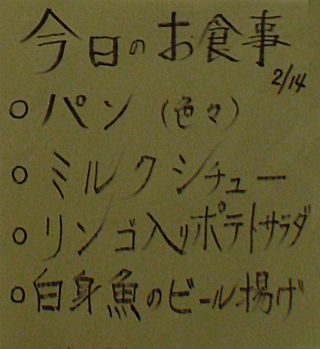 今日のお食事
2/14
○パン(色々)
○ミルクシチュー
○リンゴ入りポテトサラダ
○白身魚のビール揚げ